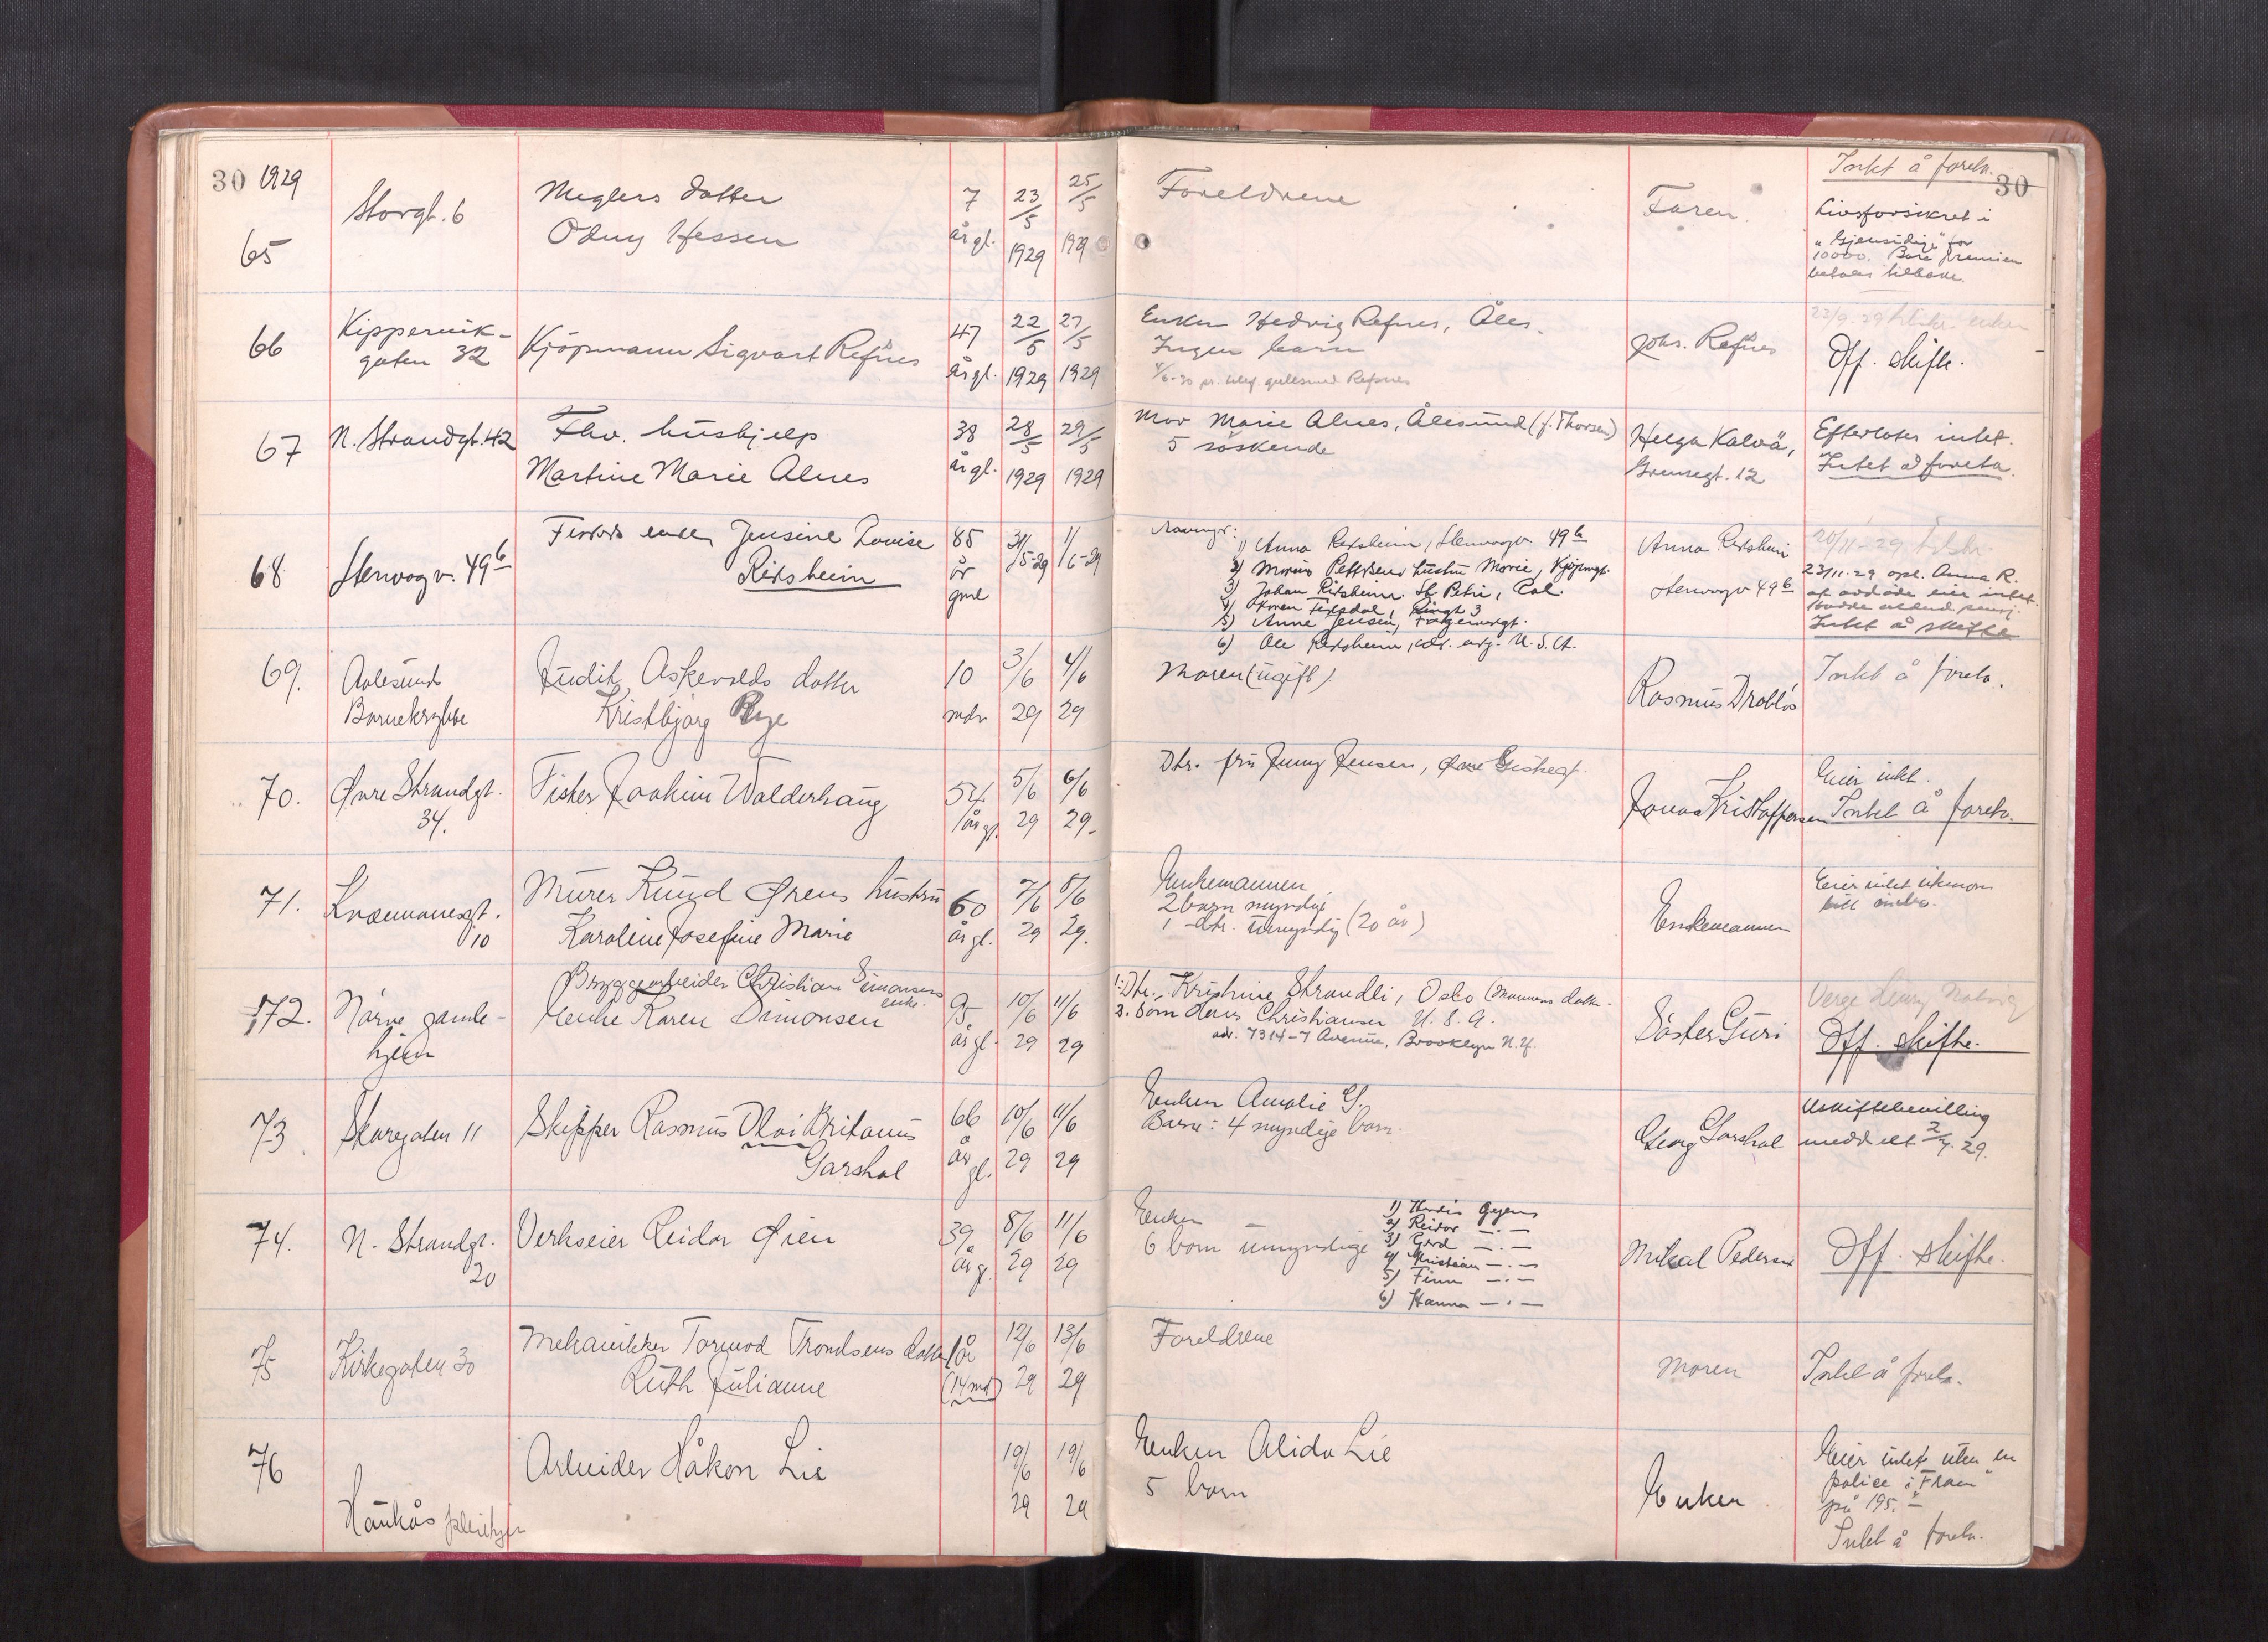 30 1929
65
Storgt. 6
Meglers datter
Odny Hessen
7
år gl.
23/5
1929
25/5
1929
Foreldrene
Faren.
Intet å foreta.
30
Livsforsikret i
"Gjensidige" for
10000. Bare premien
betales tilbake.
66
Kippervik-
gaten 32
Kjöpmann Sigvart Refsnes
47
år gl.
22/5
1929
27/5
1929
Enken Hedvig Refsnes, Åles.
Ingen barn
Johs. Refsnes
Off. skifte.
67
N. Strandgt. 42
Fhv. hushjelp
Martine Marie Alnes
38
år gl.
28/5
1929
29/5
1929
Mor Marie Alnes, Ålesund (f. Thorsen)
5 söskende
Helga Kalvå,
Grensegt. 12
Efterlater intet.
Intet å foreta.
68
Stenvågv. 49 b
enke Jensine Louise
Reksheim
85
år
gml
31/5-29
1/6-29
1) Anna Reksheim, Stenvågv 49 b
2) hustru Marie,
3) Johan Reksheim. St Petri,
4)
5) Anne Jensen,
6) Ole Reksheim, adr. U.S.A.
Anna Reksheim
Stenvågv 49 b
20/11-29
23/11-29 opl. Anna R.
at avdöde eier intet.
Intet å skifte
69.
Aalesunds
Barnekrybbe
Judit Askevolds datter
Kristbjörg
10
mdr
3/6
29
4/6
29
Moren (ugift)
Rasmus Drabløs
Intet å foreta.
70.
Øvre Strandgt.
34.
Fisker Joakim Walderhaug
54
år gl.
5/6
29
6/6
29.
Dtr. fru Jenny Jensen, Øvre
Jonas Kristoffersen
Eier intet.
Intet å foreta.
71.
10
Murer Knud Ørens hustru
Karoline Josefine Marie
60
år gl.
7/6
29
8/6
29.
Enkemannen
2 barn myndige
1 dtr. umyndig (20 år)
Enkemannen
Eier intet utenom
litt innbo.
72.
Nörve gamle-
hjem
Bryggearbeider Christian Simonsens
enke.
Karen Simonsen
95
år gl.
10/6
29
11/6
29
1. Dtr. Kristine Strandli, Oslo (Mannens datter
2. Sönn Hans Christiansen U.S.A.
adr. 7314-7 Avenue, Brooklyn N.Y.
Söster Guri
Verge Henry
Off. skifte.
73
Skaregaten 11
Skipper Rasmus Olai Britanus
Garshol
66
år
gl.
10/6
29
11/6
29
Enken Amalie G.
Barn: 4 myndige barn.
Georg Garshol
Uskiftebevilling
meddelt 2/7. 29.
74.
N. Strandgt.
20
Verkseier Reidar Øien
39
år g.
8/6
29
11/6
29
Enken
6 barn umyndige
1) Herdis Øyen
2) Reidar —.—
3) Gerd —.—
4) Kristian —.—
5) Finn —.—
6) Hanna —.—
Mikal Pedersen
Off. skifte.
75
Kirkegaten 30
Mekanikker Tormod Trondsens datter
Ruth Julianne
1 år
(14 md)
12/6
29
13/6
29
Foreldrene
Moren
Intet å foreta.
76
Haukås pleiehjem
Arbeider Håkon Lie
19/6
29
19/6
29
Enken Alida Lie
5 barn
Enken
Eier intet uten en
police i "Fram"
på 195.-
Intet å foreta.